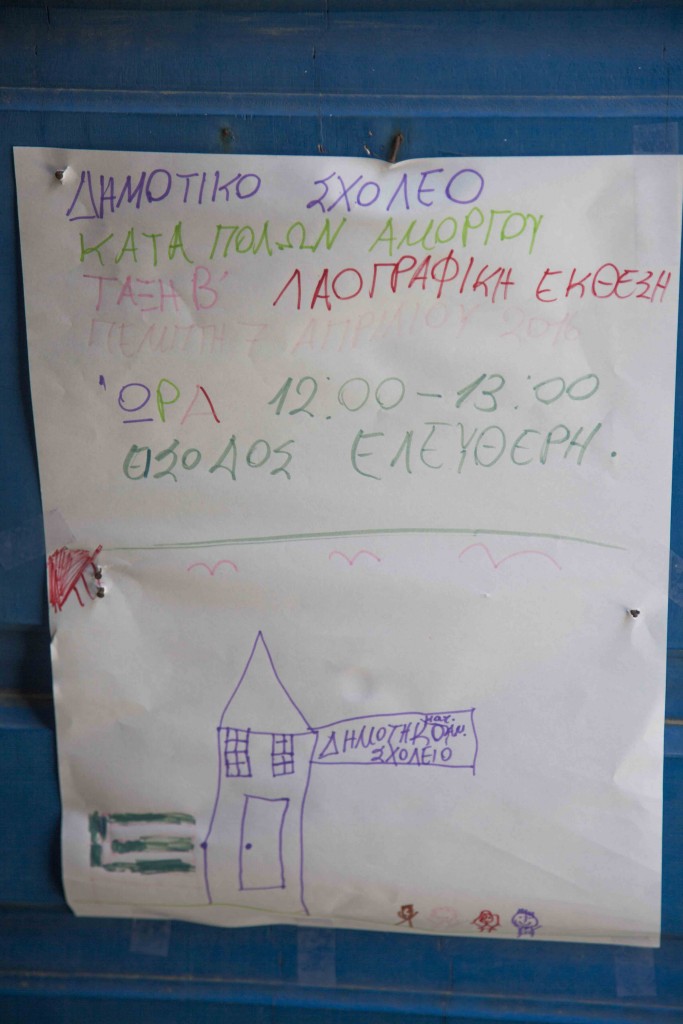 ΔΗΜΟΤΙΚΟ ΣΧΟΛΕΟ
ΚΑΤΑ ΠΟΛΩΝ ΑΜΟΡΓΟΥ
ΤΑΞΗ Β' ΛΑΟΓΡΑΦΙΚΗ ΕΚΘΕΣΗ
ΠΕΜΠΤΗ 7 ΑΠΡΙΛΙΟΥ 2016
'ΩΡΑ 12:00-13:00
ΕΙΣΟΔΟΣ ΕΛΕΥΘΕΡΗ.
ΔΗΜΟΤΗΚΟ
ΣΧΟΛΕΙΟ